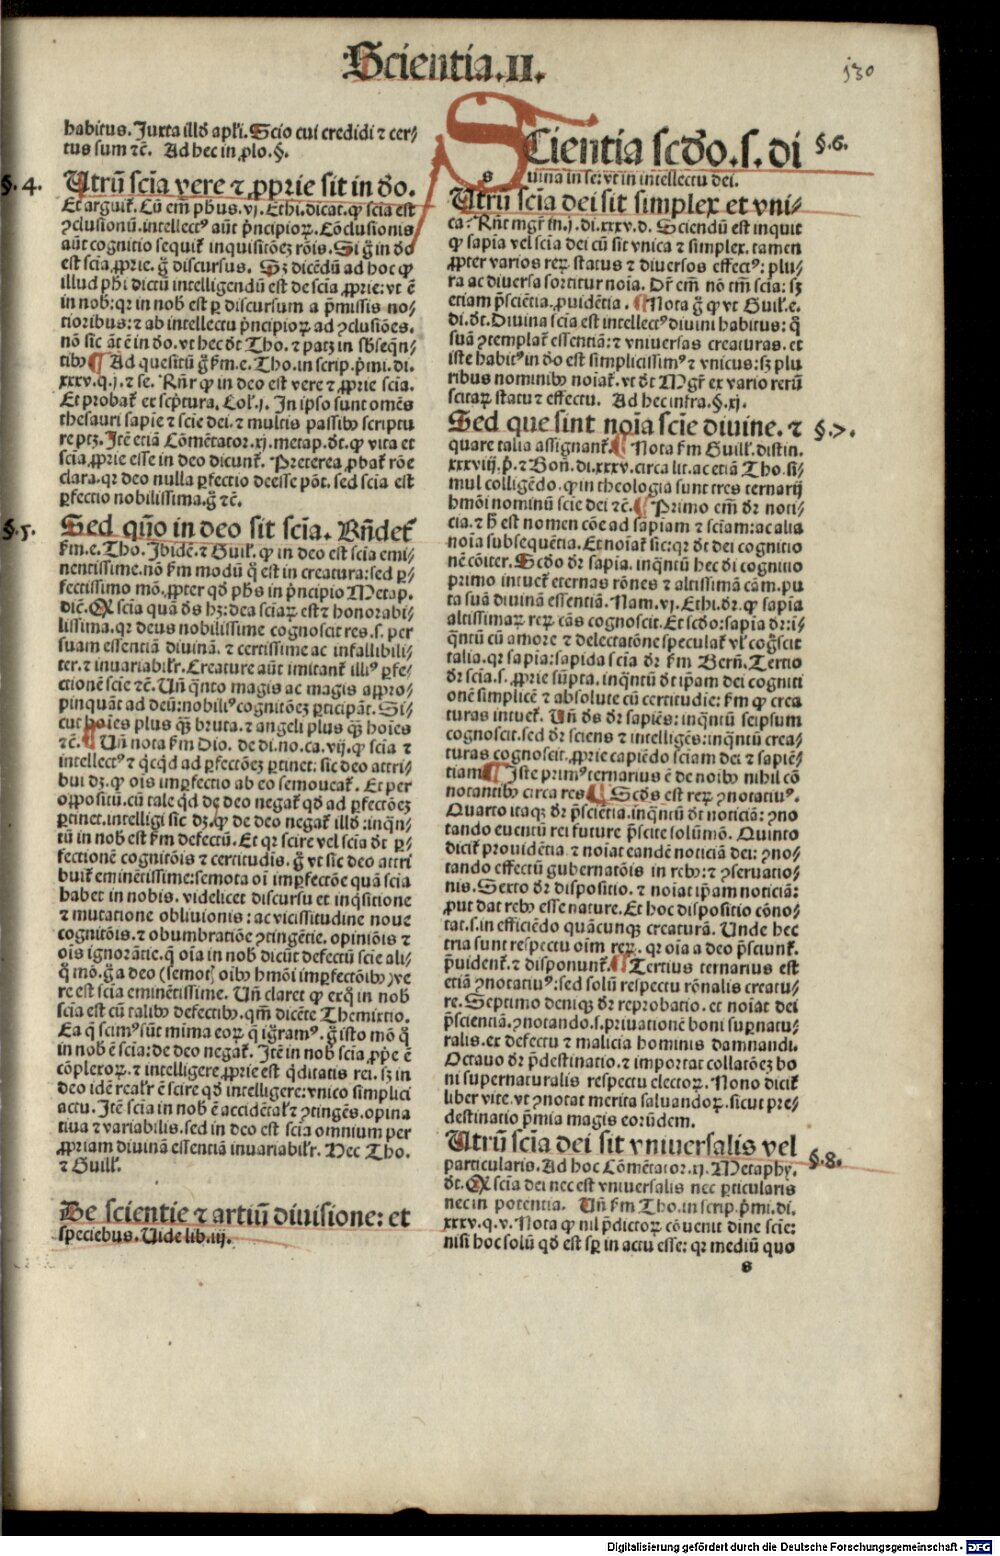 Scientia.II.
130
habitus. Iuxta illđ apłi. Scio cui credidi ⁊ cer⸗
tus sum ⁊c̄. Ad hec in ꝓlo. §.
§.4. Utrū scīa vere ⁊ ꝓprie sit in d̄o.
Et arguiť. Cū em̄ ph̄us. vj. Ethi. dicat. ꝙ scīa est
ꝯclusionū. intellectꝰ aūt p̄ncipioꝝ. Cōclusionis
aūt cognitio sequiť inquisitōeȝ rōis. Si g̊ in d̄o
est scīa ꝓprie. g̊ discursus. Sȝ dicēdū ad hoc ꝙ
illud phi dictū intelligendū est de scīa ꝓprie: vt ē
in nob̄: qꝛ in nob̄ est ꝑ discursum a p̄missis no⸗
tioribus: ⁊ ab intellectu p̄ncipioꝝ ad ꝯclusiōes.
nō sic āt ē in d̄o. vt hec d̄t Tho. ⁊ patȝ in sb̄seq̄n⸗
tibꝰ ¶ Ad quesitū g̊ ẜm. e. Tho. in scrip. p̄mi. di.
xxxv. q. j. ⁊ se. Rn̄r ꝙ in deo est vere ⁊ ꝓprie scīa.
Et probať ex sc̄ptura. Coł. j. In ipso sunt omēs
thesauri sapīe ⁊ scīe dei. ⁊ multis passibꝰ scriptu
re ptȝ. Itē etiā Cōmētator. xj. metap. d̄t. ꝙ vita et
scīa ꝓprie esse in deo dicunť. Preterea ꝓbať rōe
clara. qꝛ deo nulla ꝑfectio deesse pōt. sed scīa est
ꝑfectio nobilissima. g̊ ⁊c̄.
§.5. Sed quō in deo sit scīa. Rn̄deť
ẜm. e. Tho. Ibidē. ⁊ Guił. ꝙ in deo est scīa emi⸗
nentissime. nō ẜm modū q̄ est in creatura: sed ꝑ⸗
fectissimo mō. ꝓpter qđ ph̄s in p̄ncipio Metap.
dic̄. Ꝙ scīa quā d̄s hȝ: dea sciaꝝ est ⁊ honorabi⸗
lissima. qꝛ deus nobilissime cognoscit res. s. per
suam essentiā diuinā. ⁊ certissime ac infallibili⸗
ter. ⁊ inuariabiłr. Creature aūt imitanť illiꝰ ꝑfe⸗
ctionē scīe ⁊c̄. Un̄ q̄nto magis ac magis appro⸗
pinquāt ad deū: nobiliꝰ cognitōeȝ ꝑticipāt. Si⸗
cut hoīes plus q̄ȝ bruta. ⁊ angeli plus q̄ȝ hoīes
⁊c̄. ¶ Un̄ nota ẜm Dio. de di. no. ca. vij. ꝙ scīa ⁊
intellectꝰ ⁊ q̄cq̄d ad ꝑfectōeȝ ꝑtinet: sic deo attri⸗
bui dȝ. ꝙ ois imꝑfectio ab eo semoueať. Et per
oppositū. cū tale q̄d de deo negať qđ ad ꝑfectōeȝ
ꝑtinet. intelligi sic dȝ. ꝙ de deo negať illđ: inq̄n⸗
tū in nob̄ est ẜm defectū. Et qꝛ scire vel scīa d̄t ꝑ⸗
fectionē cognitōis ⁊ certitudīs. g̊ vt sic deo attri
buiť eminētissime: semota oī imꝑfectōe quā scīa
habet in nobis. videlicet discursu et inq̄sitione
⁊ mutatione obliuionis: ac vicissitudine noue
cognitōis. ⁊ obumbratiōe ꝯtingētie. opiniōis ⁊
ois ignorātie. q̄ oīa in nob̄ dicūt defectū scīe ali⸗
q̄ mō. g̊ a deo (semotꝭ oībꝰ hmōi imꝑfectōibꝰ) ve
re est scīa eminētissime. Un̄ claret ꝙ ex q̄ in nob̄
scīa est cū talibꝰ defectibꝰ. qm̄ dicēte Themistio.
Ea q̄ scimꝰ sūt mīma eoꝝ q̄ ig̊ramꝰ. g̊ isto mō q̄
in nob̄ ē scīa: de deo negať. Itē in nob̄ scīa ꝓpe ē
cōplexoꝝ. ⁊ intelligere ꝓprie est q̄ditatis rei. sȝ in
deo idē reałr ē scire qđ intelligere: vnico simplici
actu. Itē scīa in nob̄ ē accidētał ⁊ ꝯtingēs. opina
tiua ⁊ variabilis. sed in deo est scīa omnium per
ꝓpriam diuinā essentiā inuariabiłr. Hec Tho.
⁊ Guiłł.
De scientie ⁊ artiū diuisione: et
speciebus. Uide lib. iij.
SCientia scd̄o. s. di §.6.
s
uina in se: vt in intellectu dei.
Utrū scīa dei sit simplex et vni⸗
ca? Rn̄t mgr̄ in. j. di. xxxv. d. Sciendū est inquit
ꝙ sapīa vel scīa dei cū sit vnica ⁊ simplex. tamen
ꝓpter varios reꝝ status ⁊ diuersos effectꝰ: plu⸗
ra ac diuersa sortitur noīa. Dr̄ em̄ nō tm̄ scīa: sȝ
etiam p̄sciētia. ꝓuidētia. ¶ Nota g̊ ꝙ vt Guił. e.
di. d̄t. Diuina scīa est intellectꝰ diuini habitus: q̄
suā ꝯtemplať essentiā: ⁊ vniuersas creaturas. et
iste habitꝰ in d̄o est simplicissimꝰ ⁊ vnicus: sȝ plu
ribus nominibꝰ noīať. vt d̄t Mgr̄ ex vario rerū
scitaꝝ statu ⁊ effectu. Ad hec infra. §. xj.
Sed que sint noīa scīe diuine. ⁊ §.7.
quare talia assignanť. ¶ Nota ẜm Guiłł. distin.
xxxviij. p̄. ⁊ Bon̄. di. xxxv. circa lit. ac etiā Tho. si⸗
mul colligēdo. ꝙ in theologia sunt tres ternarij
hmōi nominū scīe dei ⁊c̄. ¶ Primo em̄ dr̄ noti⸗
cia. ⁊ h̄ est nomen cōe ad sapīam ⁊ scīam: ac alia
noīa subsequētia. Et noīať sic: qꝛ d̄t dei cognitio
nē cōiter. Scd̄o dr̄ sapīa. inq̄ntū hec dī cognitio
primo intueť eternas rōnes ⁊ altissimā cām. pu
ta suā diuinā essentiā. Nam. vj. Ethi. dr̄. ꝙ sapīa
altissimaꝝ reꝝ cās cognoscit. Et scd̄o: sapīa dr̄: i⸗
q̄ntū cū amore ⁊ delectatōne speculať vł cog̊scit
talia. qꝛ sapīa: sapida scīa dr̄ ẜm Bern̄. Tertio
dr̄ scīa. s. ꝓprie sūpta. inq̄ntū d̄t ip̄am dei cogniti
onē simplicē ⁊ absolute cū certitudīe: ẜm ꝙ crea
turas intueť. Un̄ d̄s dr̄ sapiēs: inq̄ntū seipsum
cognoscit. sed dr̄ sciens ⁊ intelligēs: inq̄ntū crea⸗
turas cognoscit. ꝓprie capiēdo scīam dei ⁊ sapiē⸗
tiam. ¶ Iste primꝰ ternarius ē de noībꝰ nihil cō
notantibꝰ circa res ¶ Scd̄s est reꝝ ꝯnotatiuꝰ.
Quarto itaqȝ dr̄ p̄sciētia. inq̄ntū d̄t noticiā: ꝯno
tando euentū rei future p̄scite solūmō. Quinto
diciť prouidētia. ⁊ noīat eandē noticiā dei: ꝯno⸗
tando effectū gubernatōis in rebꝰ: ⁊ ꝯseruatio⸗
nis. Sexto dr̄ dispositio. ⁊ noīat ip̄am noticiā:
ꝓut dat rebꝰ esse nature. Et hoc dispositio cōno⸗
tat. s. in efficiēdo quācunqȝ creaturā. Unde hec
tria sunt respectu oim reꝝ. qꝛ oīa a deo p̄sciunť.
p̄uidenť. ⁊ disponunť. ¶ Tertius ternarius est
etiā ꝯnotatiuꝰ: sed solū respectu rōnalis creatu⸗
re. Septimo deniqȝ dr̄ reprobatio. et noīat dei
p̄scientiā. ꝯnotando. s. priuationē boni suꝑnatu⸗
ralis. ex defectu ⁊ malicia hominis damnandi.
Octauo dr̄ p̄destinatio. ⁊ importat collatōeȝ bo
ni supernaturalis respectu electoꝝ. Nono diciť
liber vite. vt ꝯnotat merita saluandoꝝ. sicut pre⸗
destinatio p̄mia magis eorūdem.
Utrū scīa dei sit vniuersalis vel §.8.
particularis. Ad hoc Cōmētator. xj. Metaphy.
d̄t. Ꝙ scīa dei nec est vniuersalis nec ꝑticularis
nec in potentia. Un̄ ẜm Tho. in scrip. p̄mi. di.
xxxv. q. v. Nota ꝙ nil p̄dictoꝝ cōuenit dīne scīe:
nisi hoc solū qđ est sꝑ in actu esse: qꝛ mediū quo
s
Digitalisierung gefördert durch die Deutsche Forschungsgemeinschaft - DFG